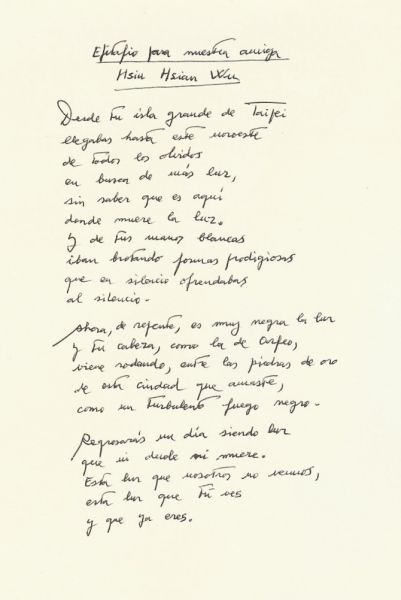 Epitafio para nuestra amiga
Hsiu Hsian Wu
Desde tu isla grande de Taipei
llegabas hasta este noroeste
de todos los olvidos
en busca de más luz,
sin saber que es aquí
donde muere la luz.
Y de tus manos blancas
iban brotando formas prodigiosas
que en silencio ofrendabas
al silencio.
Ahora, de repente, es muy negra la luz
y tu cabeza, como la de Orfeo,
viene rodando, entre las piedras de oro
de esta ciudad que amaste,
como un turbulento fuego negro.
Regresarás un día siendo luz
que ni duele ni muere.
Esta luz que nosotros no vemos,
esta luz que tú ves
y que ya eres.